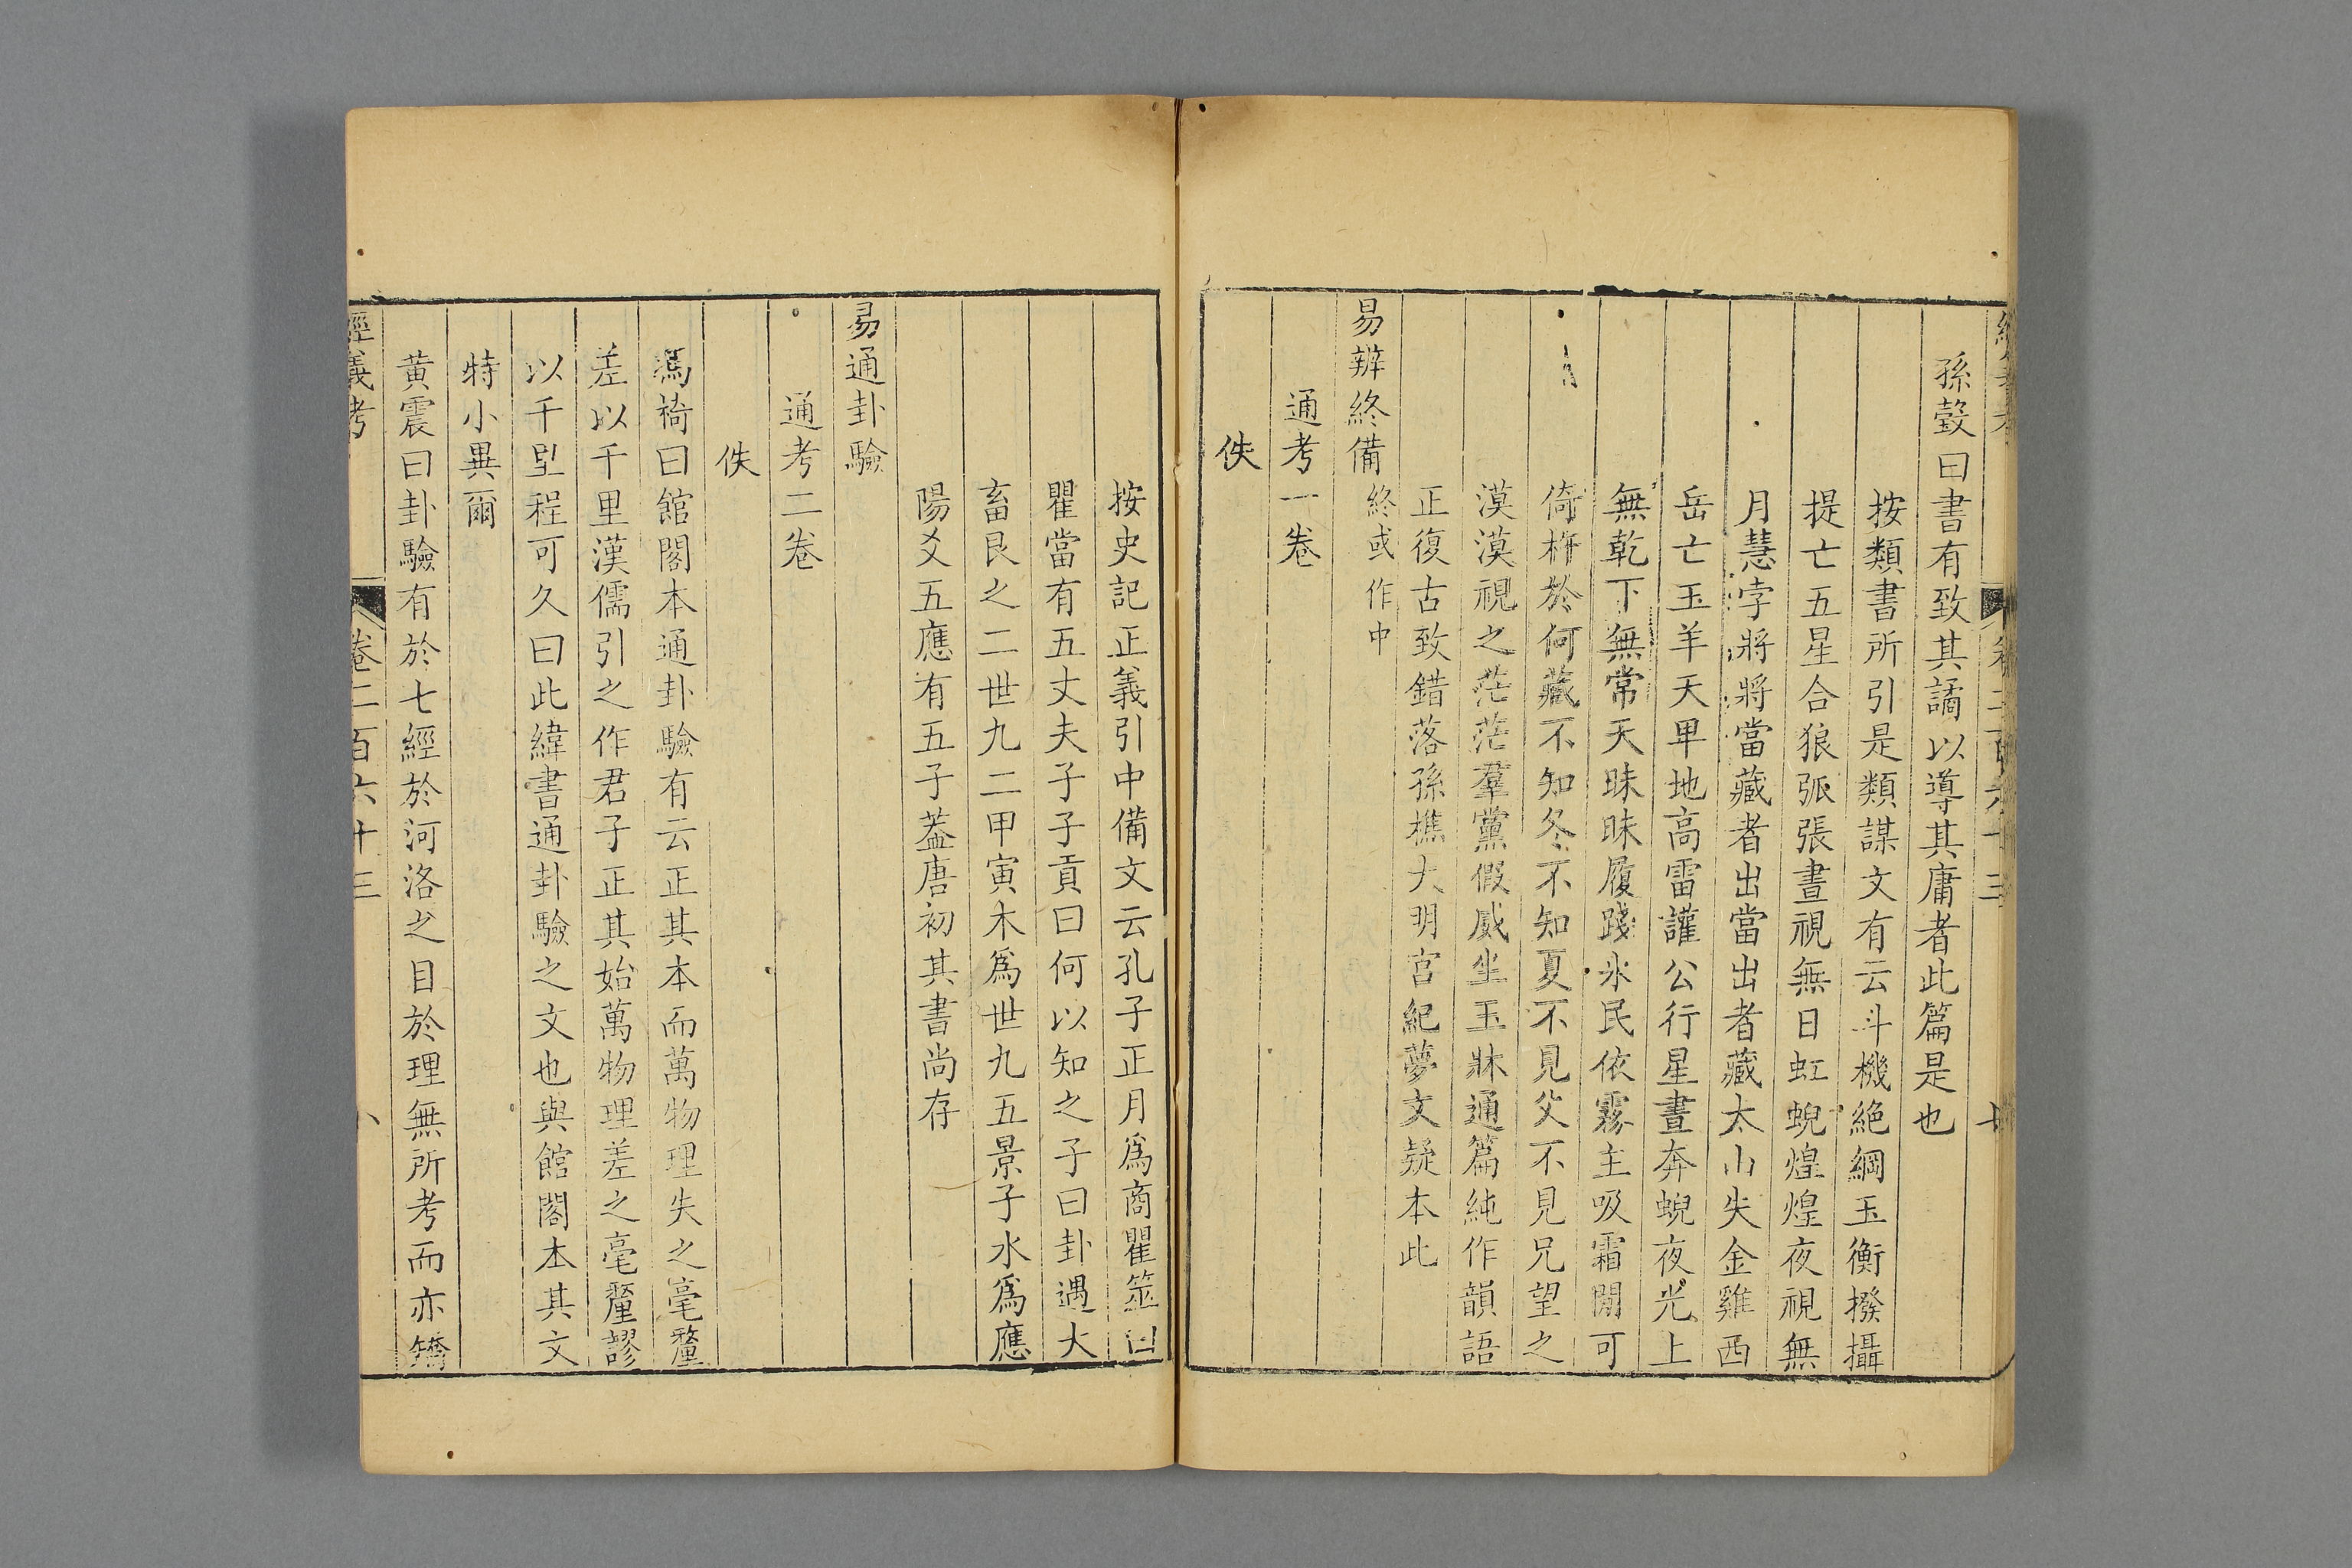 孫瑴曰書有致其譎以導其庸者此篇是也
按類書所引是類謀文有云斗機絶綱玉衡撥攝
提亡五星合狼弧張晝視無日虹蜺煌煌夜視無
月慧孛將將當藏者出當出者藏太山失金雞西
岳亡玉羊天卑地高雷讙公行星晝奔蜺夜光上
無乾下無常天昧昧履踐氷民依霧主吸霜閒可
倚杵於何藏不知冬不知夏不見父不見兄望之
漠漠視之茫茫羣黨假威坐玉牀通篇純作韻語
正復古致錯落孫樵大明宮紀夢文疑本此
易辨終備終或作中
通考一卷
佚
按史記正義引中備文云孔子正月爲商瞿筮曰
瞿當有五丈夫子子貢曰何以知之子曰卦遇大
畜艮之二世九二甲寅木爲世九五景子水爲應
陽爻五應有五子葢唐初其書尚存
易通卦驗
通考二卷
佚
馮椅曰館閣本通卦驗有云正其本而萬物理失之毫釐
差以千里漢儒引之作君子正其始萬物理差之毫釐謬
以千里程可久曰此緯書通卦驗之文也與館閣本其文
特小異爾
黄震曰卦驗有於七經於河洛之目於理無所考而亦矯
經義考 卷二百六十三 八